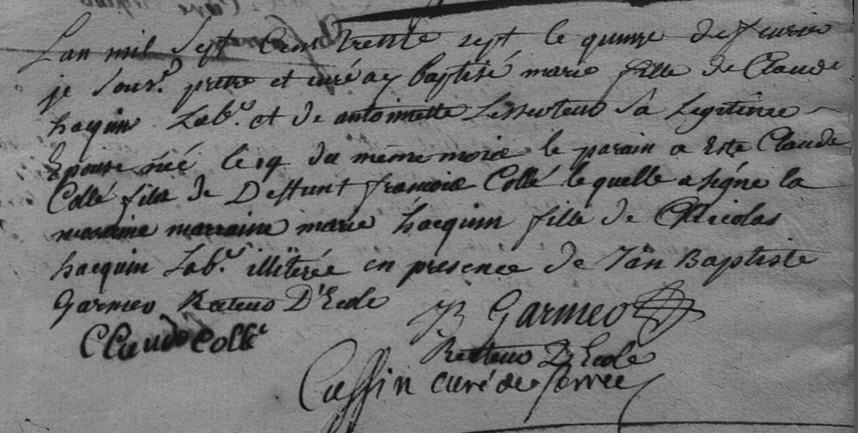 L'an mil Sept Cens trente sept le quinze de fevrier
je Sous.é pretre et curé ay baptisé marie fille de Claude
hacquin Lab.r et de antoinette Lesserteur Sa Legitime
Epouse née le 14 du meme mois le parain a Este Claude
Collé fils de Deffunt francois Collé lequelle a signe la
maraine marraine marie hacquin fille de Nicolas
hacquin Lab.r illiterée en presence de Jan Baptiste
Garmeo Recteur D'Ecole
JB Garmeo
Claude Collé
Recteur D'Ecole
Cuffin curé de